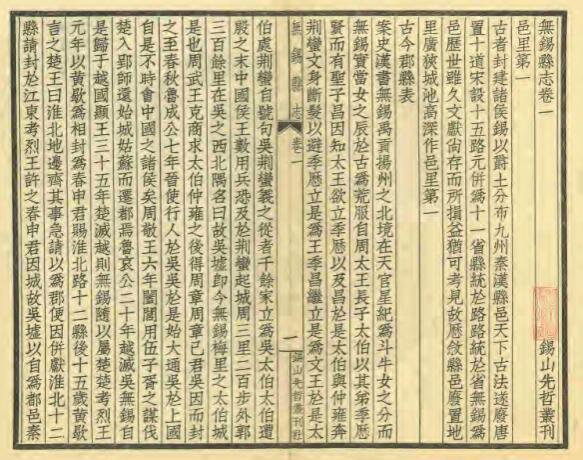 無錫縣志卷一
錫山先哲叢刊
邑里第一
古者封建諸侯錫以爵土分布九州秦漢縣邑天下古法遂廢唐
置十道宋設十五路元併爲十一省縣統於路路統於省無錫爲
邑歷世雖久文獻尙存而所損益猶可考見故歷敘縣邑廢置地
里廣狹城池高深作邑里第一
古今郡縣表
案史漢書無錫禹貢揚州之北境在天官星紀爲斗牛女之分而
無錫實當女之辰於古爲荒服自周太王長子太伯以其弟季歷
賢而有聖子昌因知太王欲立季歷以及昌於是太伯與仲雍奔
荆蠻文身斷髮以避季歷立是爲王季昌繼立是爲文王於是太
無錫縣志
卷一
一
錫山先哲叢刊社
伯處荆蠻自號句吳荆蠻義之從者千餘家立爲吳太伯太伯遭
殷之末中國侯王數用兵恐及於荆蠻起城周三里二百步外郭
三百餘里在吳之西北隅名曰故吳墟卽今無錫梅里之太伯城
是也周武王克商求太伯仲雍之後得周章周章已君吳因而封
之至春秋魯成公七年晉使行人於吳吳於是始大通吳於上國
自是不時會中國之諸侯矣周敬王六年闔閭用伍子胥之謀伐
楚入郢師還始城姑蘇而遷都焉魯哀公二十年越滅吳無錫自
是歸于越國顯王三十五年楚滅越則無錫隨以屬楚楚考烈王
元年以黃歇爲相封爲春申君賜淮北路十二縣後十五歲黃歇
言之楚王曰淮北地邊齊其事急請以爲郡便因併獻淮北十二
縣請封於江東考烈王許之春申君因城故吳墟以自爲都邑秦